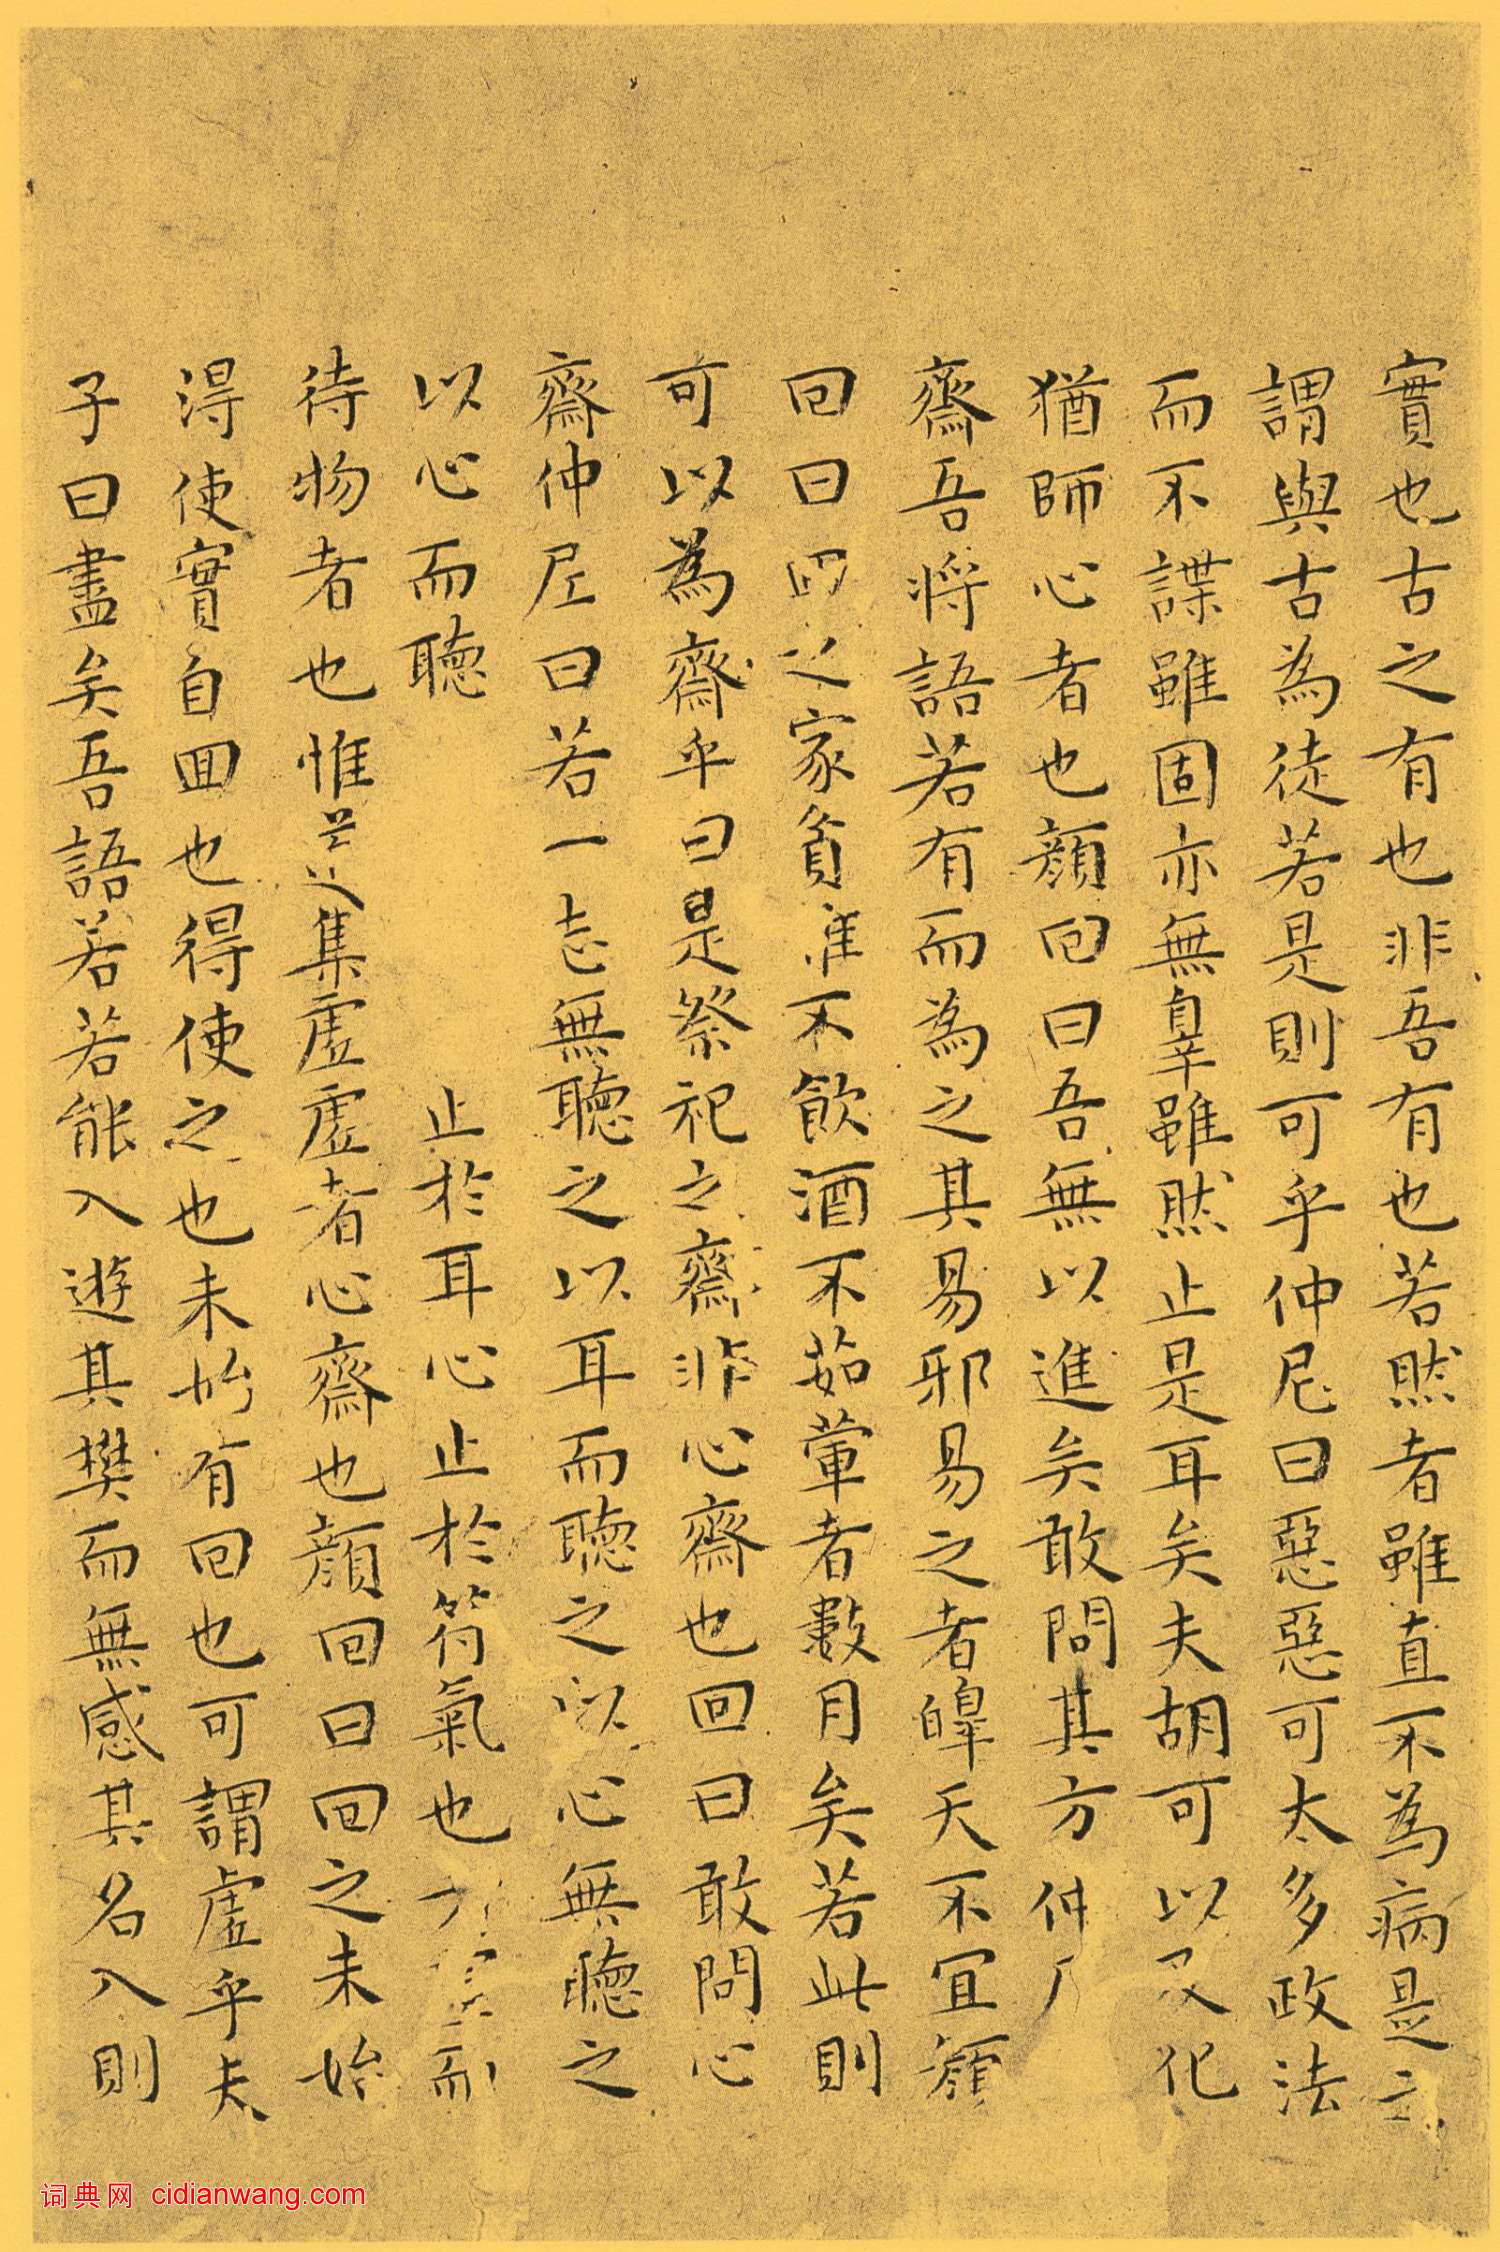 實也古之有也非吾有也若然者雖直不為病是之
謂與古為徒若是則可乎仲尼曰惡惡可太多政法
而不諜雖固亦無辠雖然止是耳矣夫胡可以及化
猶師心者也顏回曰吾無以進矣敢問其方仲
齋吾將語若有而為之其易邪易之者皥天不宜顏
回曰回之家貧唯不飲酒不茹葷者數月矣若此則
可以為齋乎曰是祭祀之齋非心齋也回曰敢問心
齋仲尼曰若一志無聽之以耳而聽之以心無聽之
以心而聽 止於耳心止於符氣也 而
待物者也惟 之集虛虛者心齋也顏回曰回之未始
淂使實自回也得使之也未始有回也可謂虛乎夫
子曰盡矣吾語若若能入遊其樊而無感其名入則
词典网 cidianwang.com